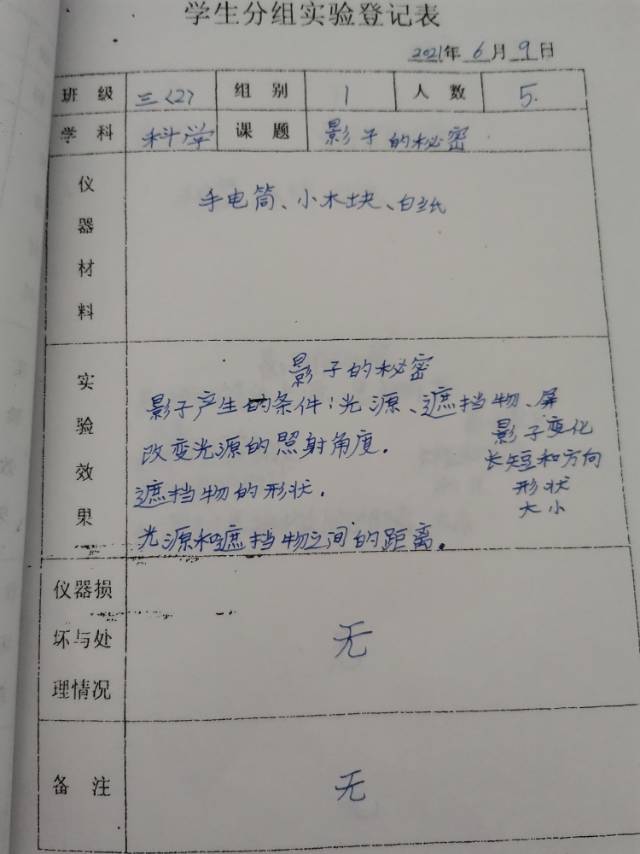 学生分组实验登记表
2021年 6月 9日
班级 三(2) 组别 1 人数 5.
学科 科学 课题 影子的秘密
仪器材料 手电筒、小木块、白纸
实验效果
影子的秘密
影子产生的条件:光源、遮挡物、屏
影子变化
改变光源的照射角度. 长短和方向
遮挡物的形状. 形状
大小
光源和遮挡物之间的距离.
仪器损
坏与处 无
理情况
备注 无